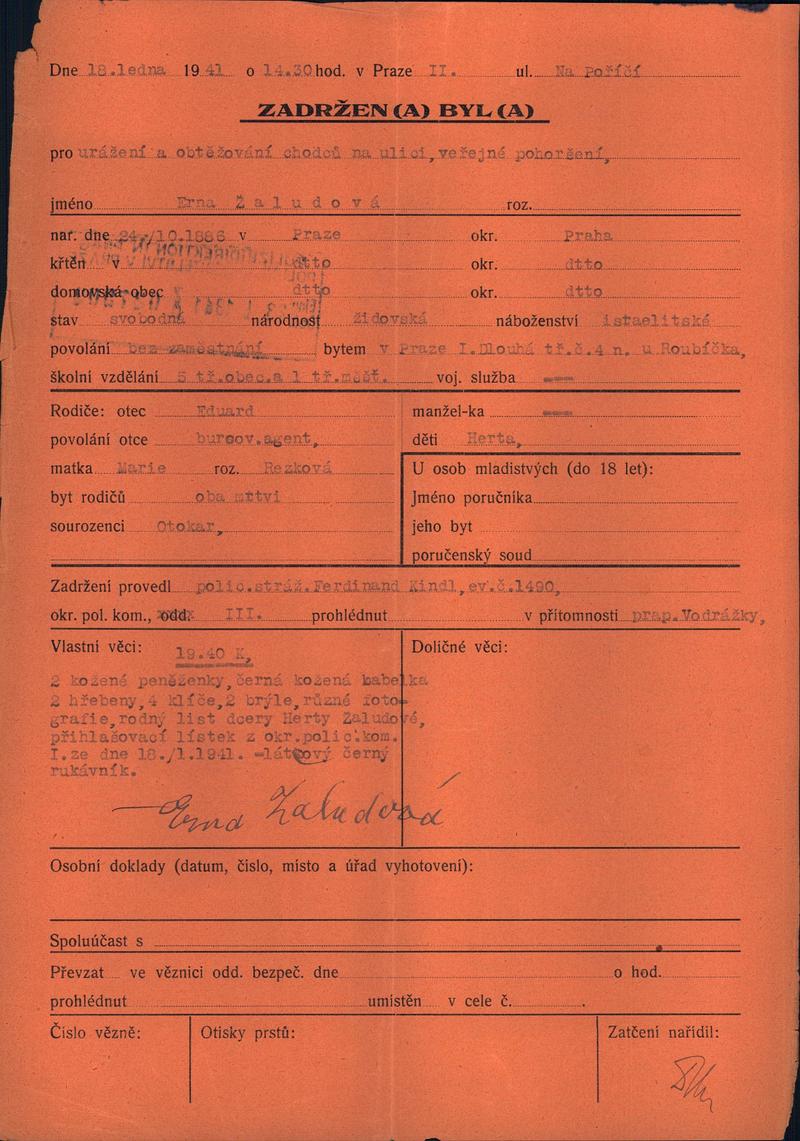 Dne 18.ledna 1941 o 14.30 hod. v Praze II. ul. Na Poříčí
ZADRŽEN(A) BYL(A)
pro urážení a obtěžování chodců na ulici, veřejné pohoršení,
jméno Erna Žaludová roz.
nar. dne 24./10.1886 v Praze okr. Praha
křtěn v dtto okr. dtto
domovská obec dtto okr. dtto
stav svobodná národnost židovská náboženství israelitské
povolání bez zaměstnání bytem v Praze I.Dlouhá tř.č.4 n. u Roubíčka,
školní vzdělání 5 tř.obec.a 1 tř.měšť. voj. služba ---
Rodiče: otec Eduard manžel-ka ---
povolání otce bursov.agent, děti Herta,
matka Marie roz. Rezková U osob mladistvých (do 18 let):
byt rodičů oba mrtvi Jméno poručníka
sourozenci Otokar, jeho byt
poručenský soud
Zadržení provedl polic.stráž.Ferdinand Kindl, ev.č.1490,
okr. pol. kom., odd. III. prohlédnut v přítomnosti prap.Vodrážky,
Vlastní věci: 19.40 K, Doličné věci:
2 kožené peněženky, černá kožená kabelka
2 hřebeny, 4 klíče, 2 brýle, různé foto-
grafie, rodný list dcery Herty Žaludové,
přihlašovací lístek z okr.polic.kom.
I. ze dne 18./1.1941. -látkový černý
rukávník.
Erna Žaludová
Osobní doklady (datum, číslo, místo a úřad vyhotovení):
Spoluúčast s
Převzat ve věznici odd. bezpeč. dne o hod.
prohlédnut umístěn v cele č. .
Číslo vězně: Otisky prstů: Zatčení nařídil: